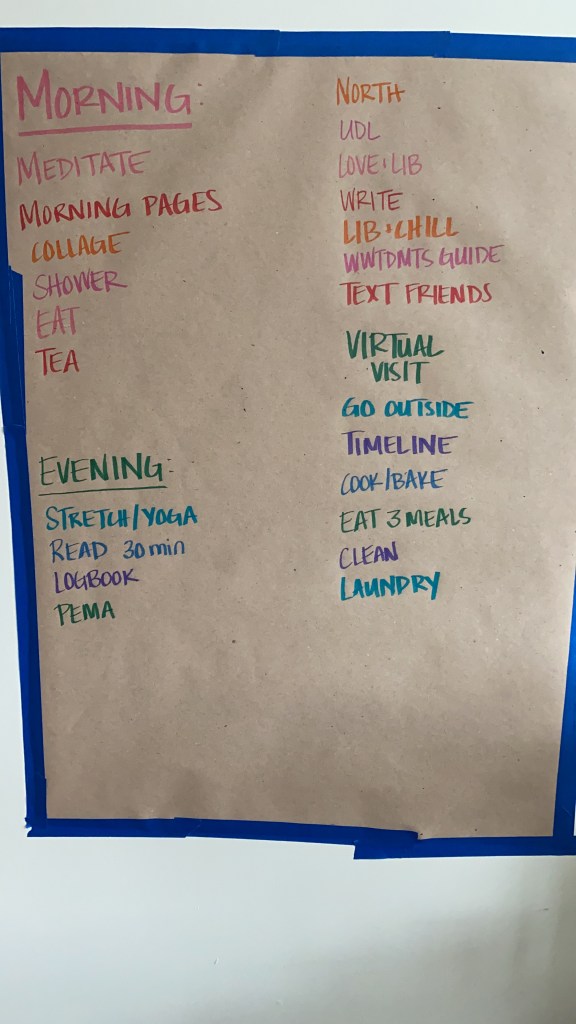 MORNING
MEDITATE
MORNING PAGES
COLLAGE
SHOWER
EAT
TEA
EVENING:
STRETCH/YOGA
READ 30 min
LOGBOOK
PEMA
NORTH
UDL
LOVE & LIB
WRITE
LIB & CHILL
WWTDMTS GUIDE
TEXT FRIENDS
VIRTUAL
VISIT
GO OUTSIDE
TIMELINE
COOK/BAKE
EAT 3 MEALS
CLEAN
LAUNDRY